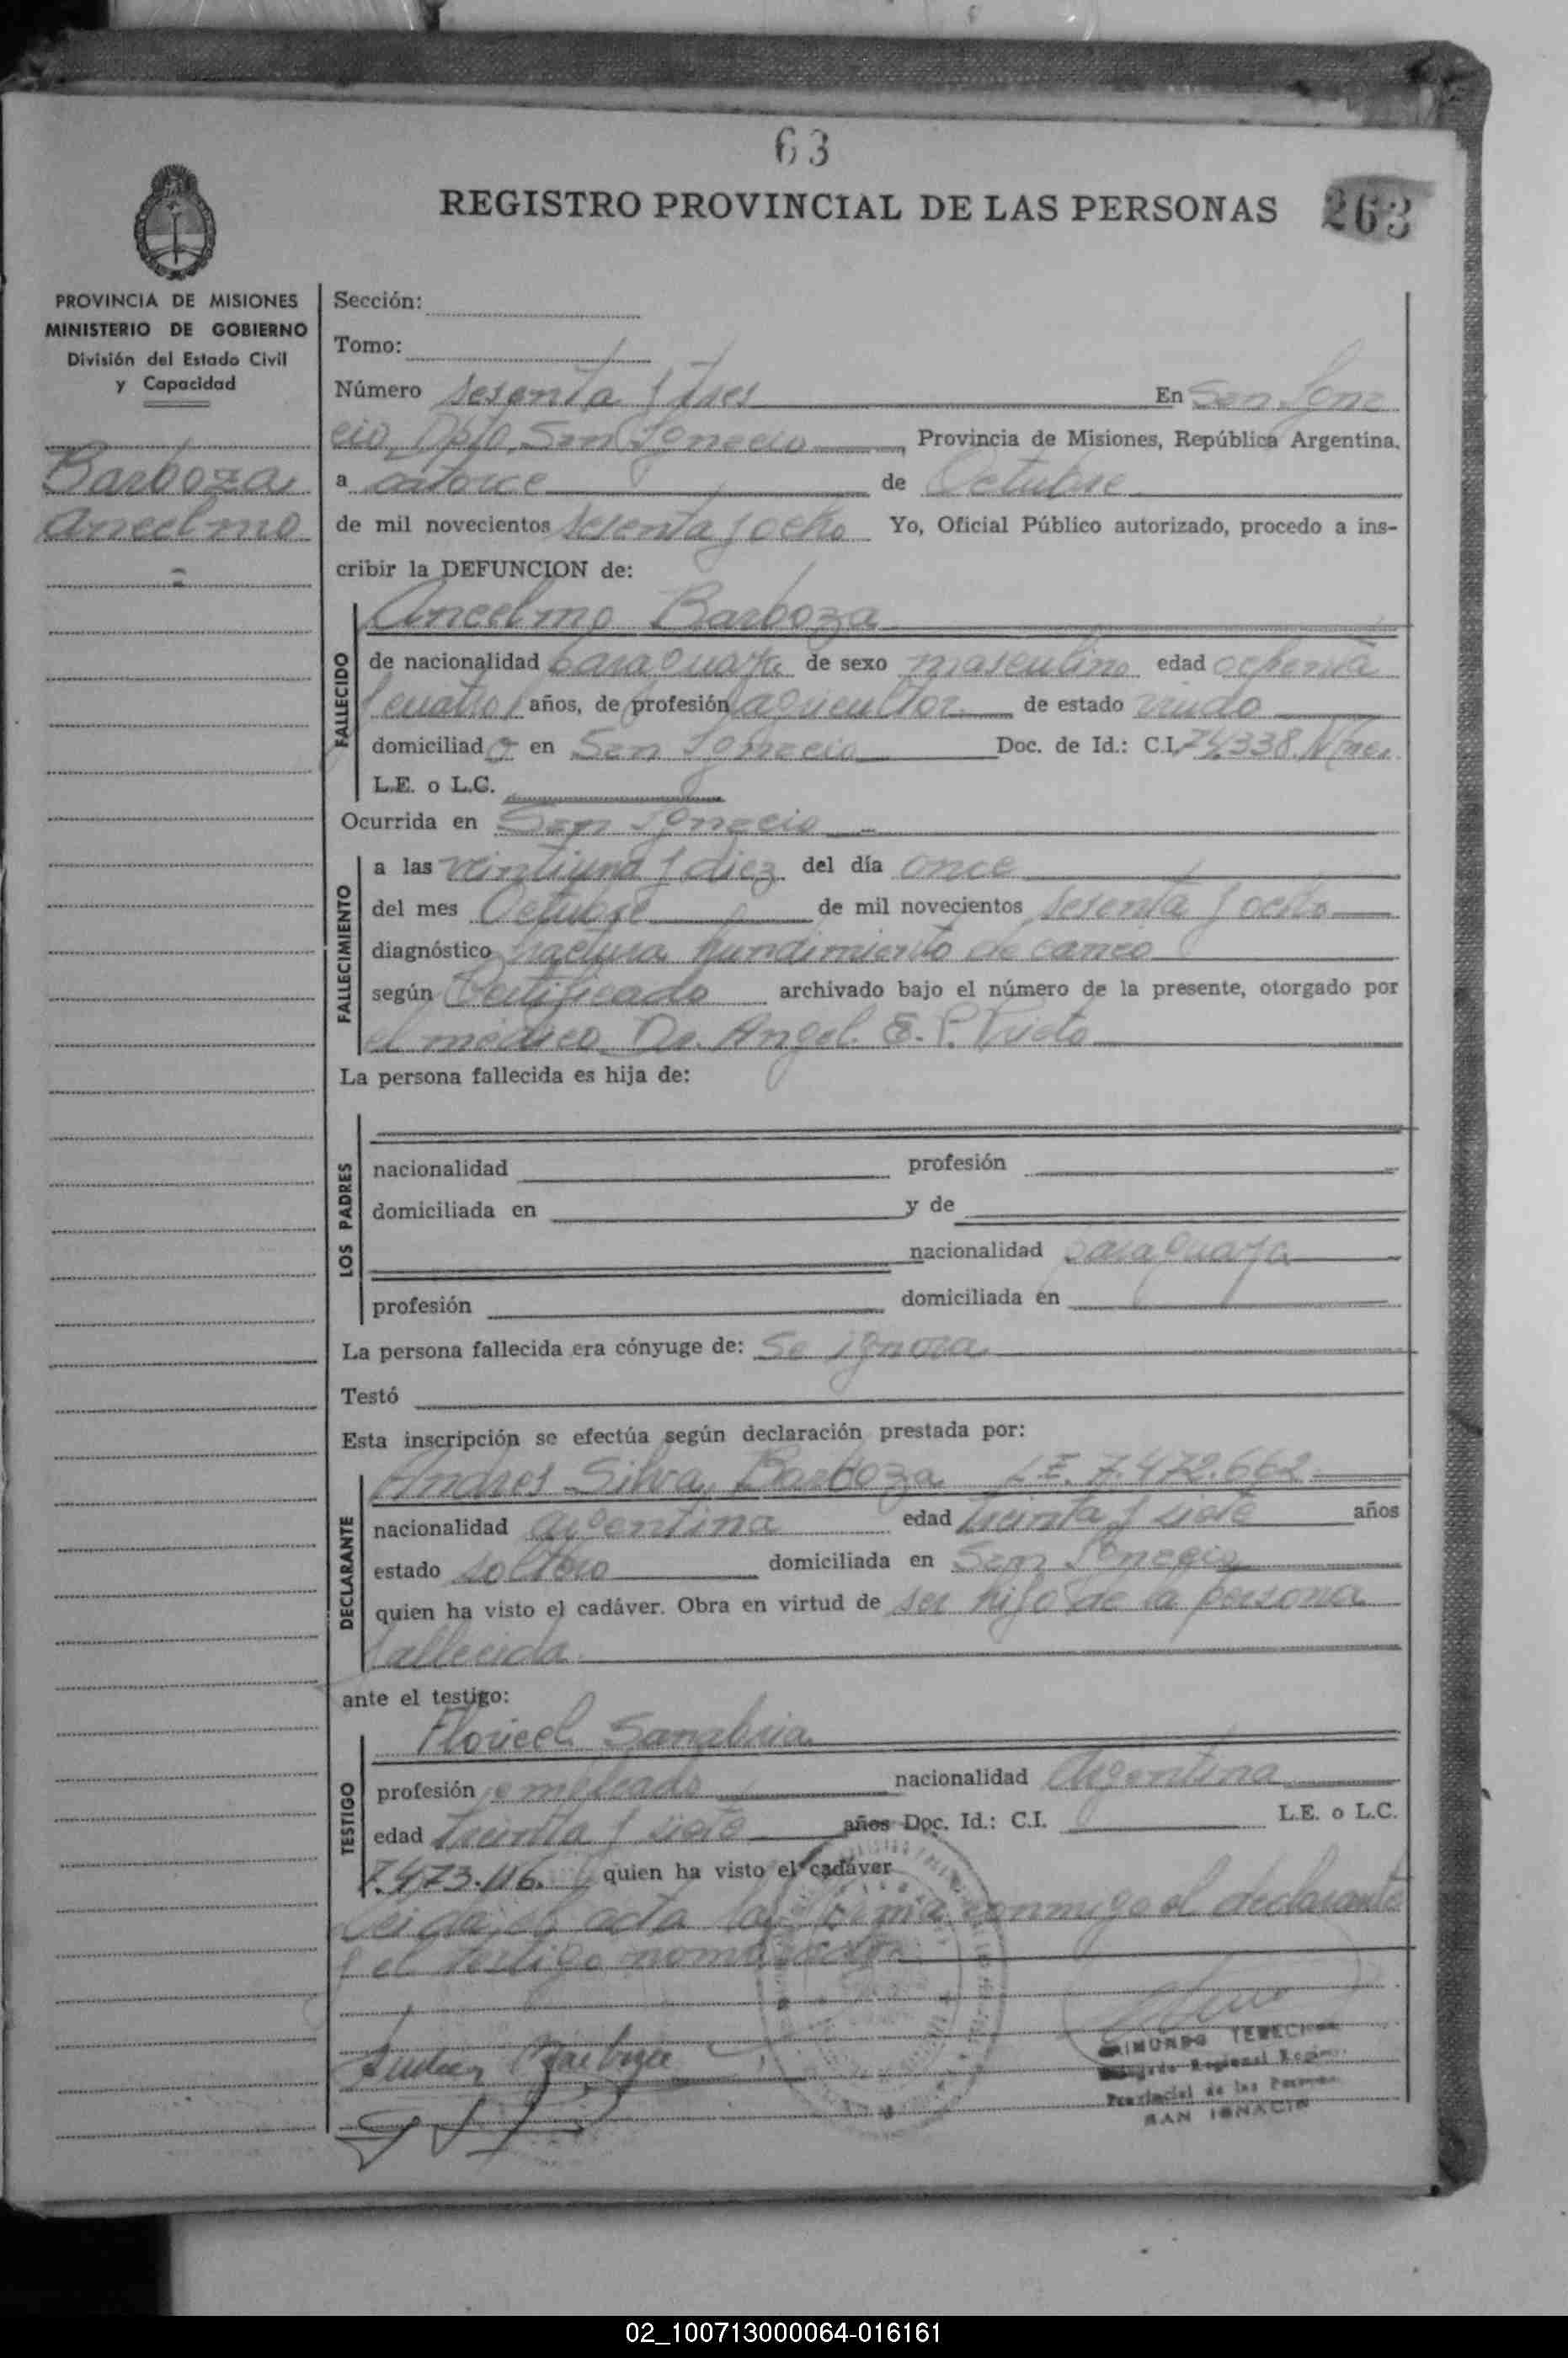 63
REGISTRO PROVINCIAL DE LAS PERSONAS 263
PROVINCIA DE MISIONES
MINISTERIO DE GOBIERNO
División del Estado Civil
y Capacidad
Barboza
Ancelmo
Sección:
Tomo:
Número sesenta y tres En San Igna
cio, Dpto. San Ignacio, Provincia de Misiones, República Argentina.
a catorce de Octubre
de mil novecientos sesenta y ocho Yo, Oficial Público autorizado, procedo a ins-
cribir la DEFUNCION de:
Ancelmo Barboza
FALLECIDO
de nacionalidad paraguaya de sexo masculino edad ochenta
y cuatro años, de profesión agricultor de estado viudo
domiciliado en San Ignacio Doc. de Id.: C.I. 74.338.
L.E. o L.C.
Ocurrida en San Ignacio
FALLECIMIENTO
a las veintiuna y diez del día once
del mes Octubre de mil novecientos sesenta y ocho
diagnóstico fractura hundimiento de craneo
según Certificado archivado bajo el número de la presente, otorgado por
el médico Dr. Angel E. P.
La persona fallecida es hija de:
LOS PADRES
nacionalidad profesión
domiciliada en y de
nacionalidad paraguaya
profesión domiciliada en
La persona fallecida era cónyuge de: Se ignora
Testó
Esta inscripción se efectúa según declaración prestada por:
DECLARANTE
Andres Silva Barboza L.E. 7.472.662
nacionalidad argentina edad treinta y siete años
estado soltero domiciliada en San Ignacio
quien ha visto el cadáver. Obra en virtud de ser hijo de la persona
fallecida
ante el testigo:
TESTIGO
Floricel Sanabria
profesión empleado nacionalidad Argentina
edad treinta y siete años Doc. Id.: C.I. L.E. o L.C.
7.473.116. quien ha visto el cadáver
Leida el acta la firma conmigo el declarante
y el testigo nombrado
Delegado Regional
Provincial de las Personas
SAN IGNACIO
02_100713000064-016161